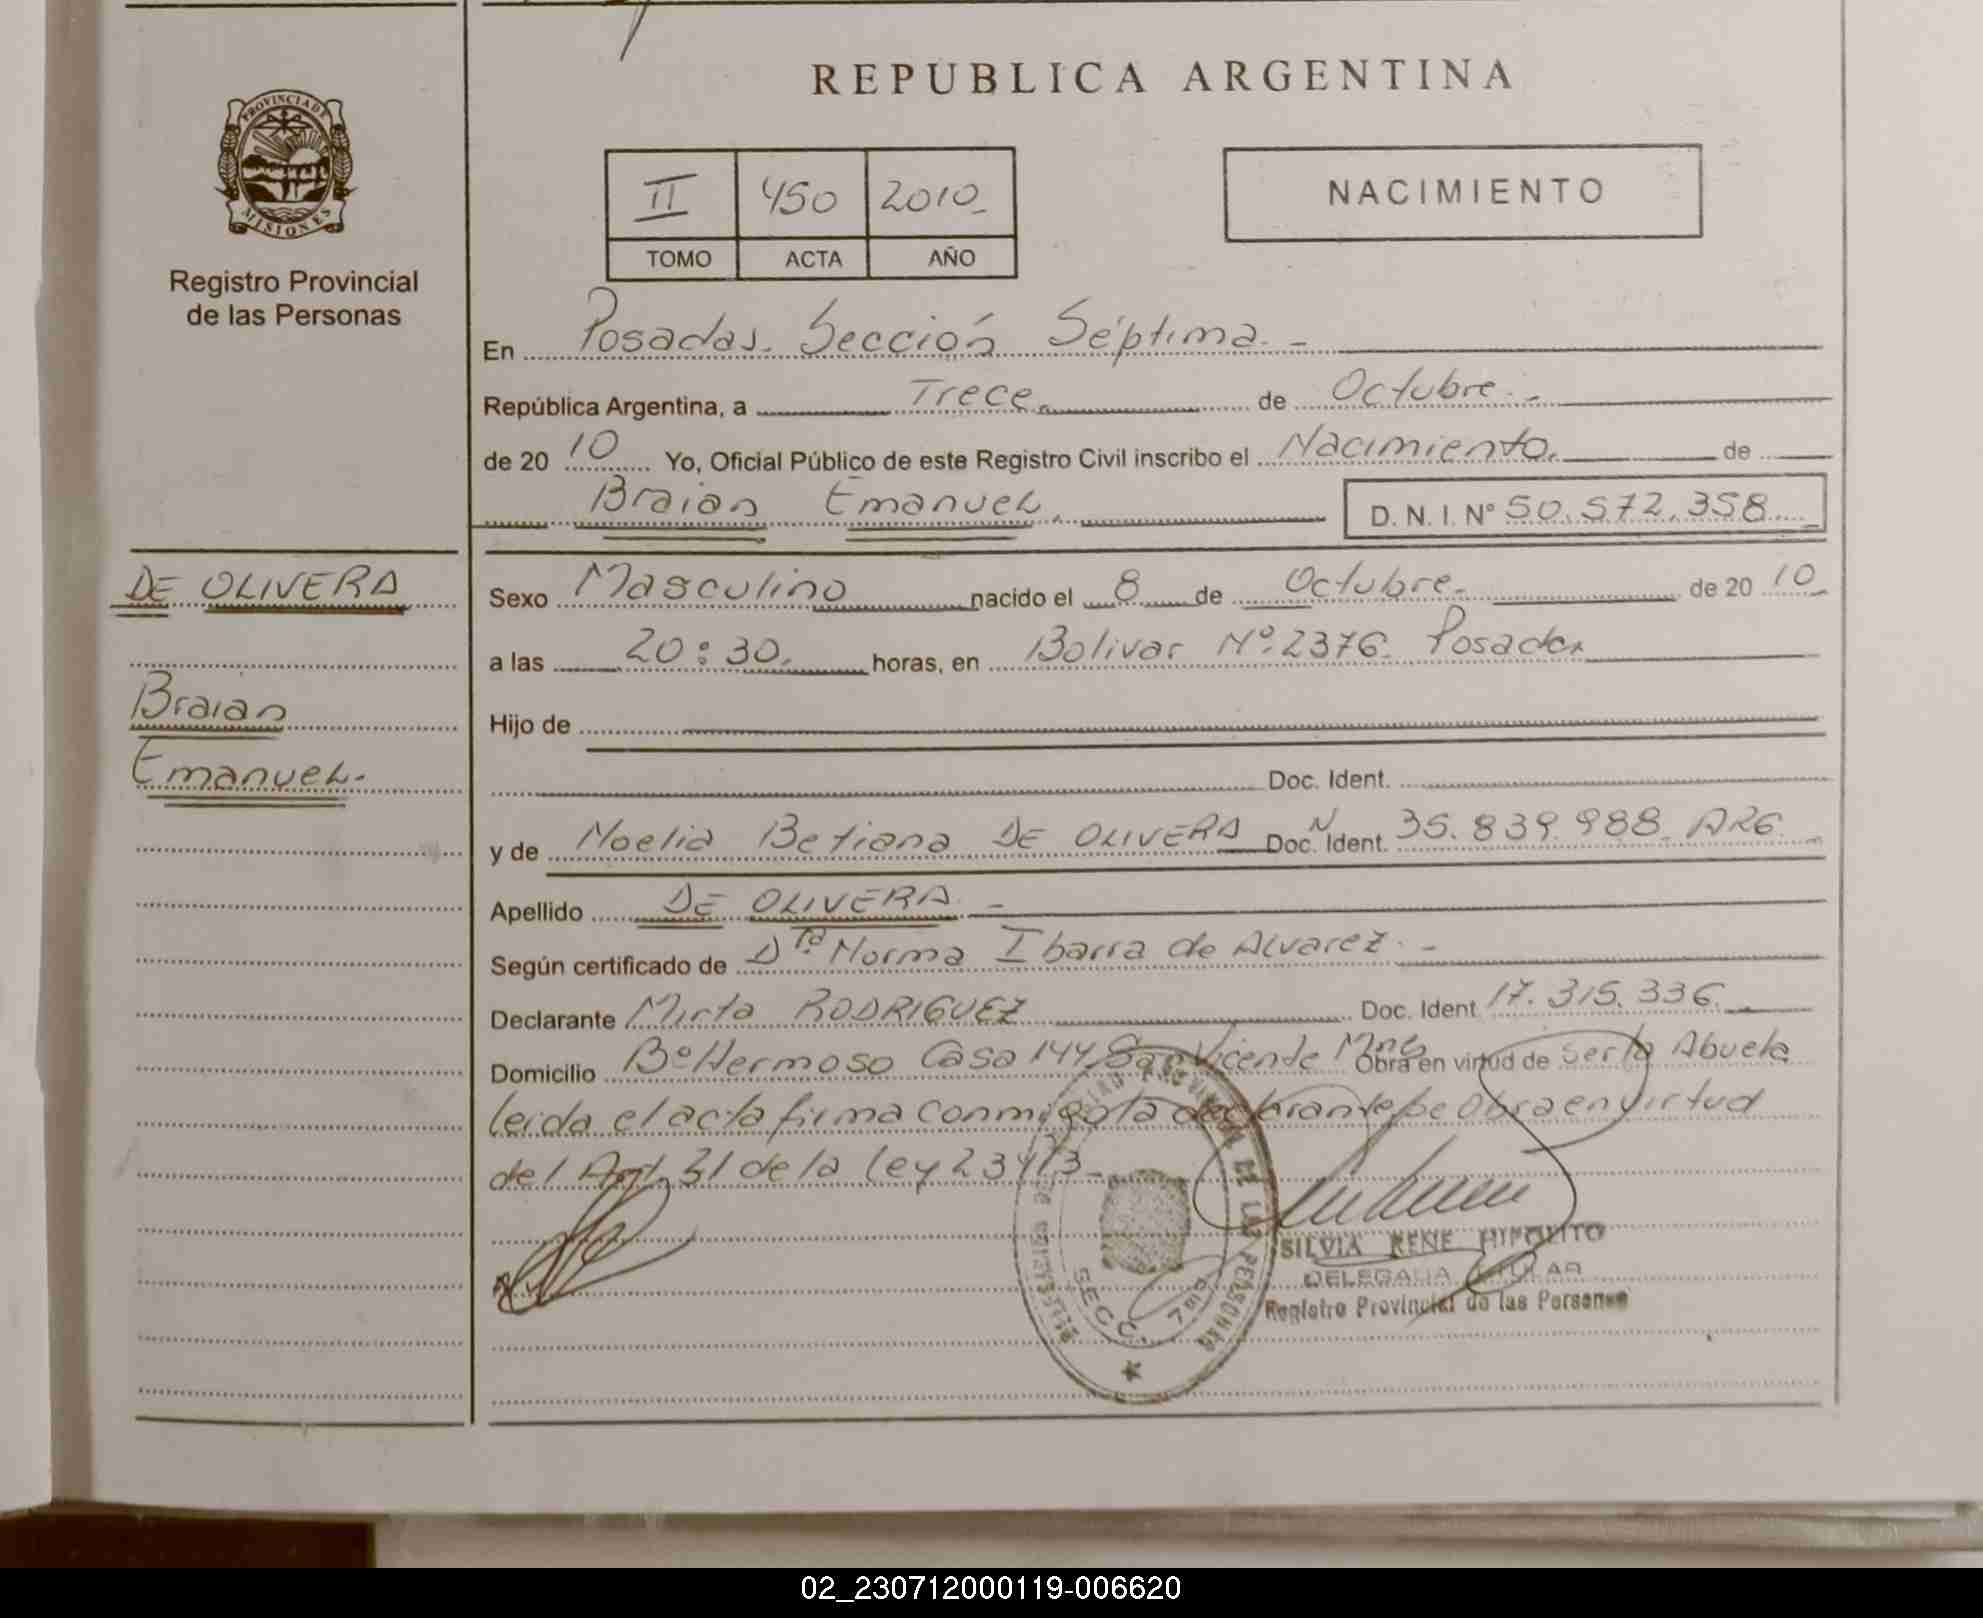 REPUBLICA ARGENTINA
PROVINCIA DE MISIONES
Registro Provincial
de las Personas
II 450 2010
TOMO ACTA AÑO
NACIMIENTO
En Posadas. Sección Séptima.-
República Argentina, a Trece. de Octubre.-
de 2010 Yo, Oficial Público de este Registro Civil inscribo el Nacimiento. de
Braian Emanuel. D. N. I. Nº 50.572.358.
DE OLIVERA
Braian
Emanuel.
Sexo Masculino nacido el 8 de Octubre. de 2010
a las 20:30. horas, en Bolivar Nº: 2376. Posadas
Hijo de
Doc. Ident.
y de Noelia Betiana DE OLIVERA Doc. N Ident. 35.839.988. ARG.
Apellido DE OLIVERA.-
Según certificado de Dra. Norma Ibarra de Alvarez.-
Declarante Mirta RODRIGUEZ Doc. Ident 17.315.336.
Domicilio Bº Hermoso Casa 144 San Vicente Mnes Obra en virtud de ser la Abuela
leida el acta firma conmigo la declarante se obra en virtud
del Art. 31 de la ley 23413-
REGISTRO PROVINCIAL DE LAS PERSONAS
SECC. 7ma
SILVIA RENE HIPOLITO
DELEGADA TITULAR
Registro Provincial de las Personas
02_230712000119-006620